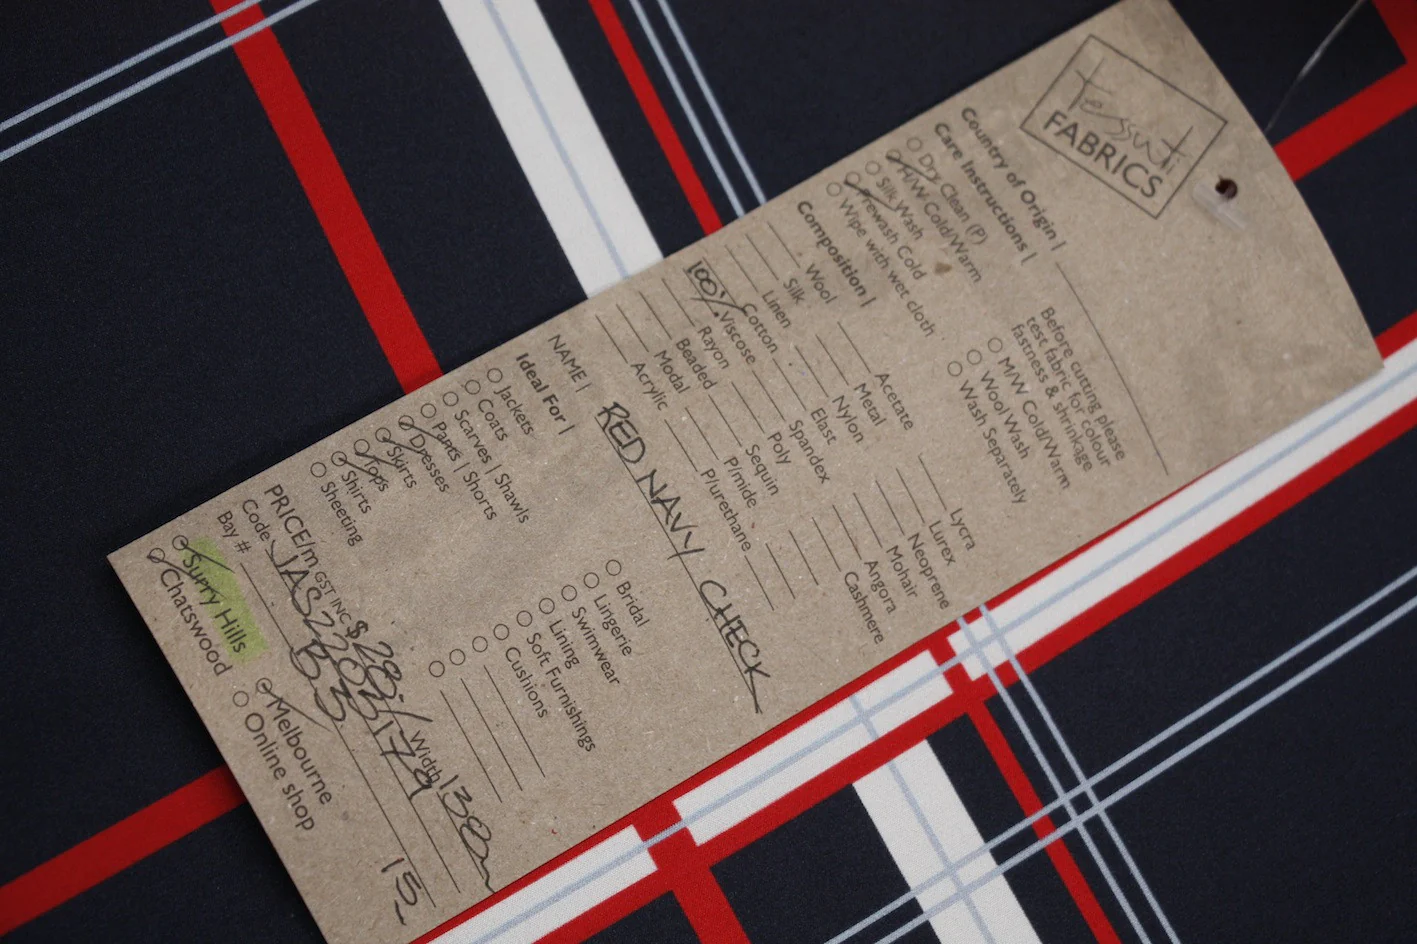 Tessuti
FABRICS
Country of Origin |
Care Instructions |
Dry Clean (P)
H/W Cold/Warm
Silk Wash
Prewash Cold
Wipe with wet cloth
Before cutting please
test fabric for colour
fastness & shrinkage
M/W Cold/Warm
Wool Wash
Wash Separately
Composition |
Wool Acetate Lycra
Silk Metal Lurex
Linen Nylon Neoprene
Cotton Elast Mohair
100% Viscose Spandex Angora
Rayon Poly Cashmere
Beaded Sequin
Modal P/mide
Acrylic P/urethane
NAME | RED NAVY CHECK
Ideal For |
Jackets
Coats
Scarves | Shawls
Pants | Shorts
Dresses
Skirts
Tops
Shirts
Sheeting
Bridal
Lingerie
Swimwear
Lining
Soft Furnishings
Cushions
PRICE/m GST INC $ 29 Width 138
Code
Bay # 15
Surry Hills
Chatswood
Melbourne
Online shop